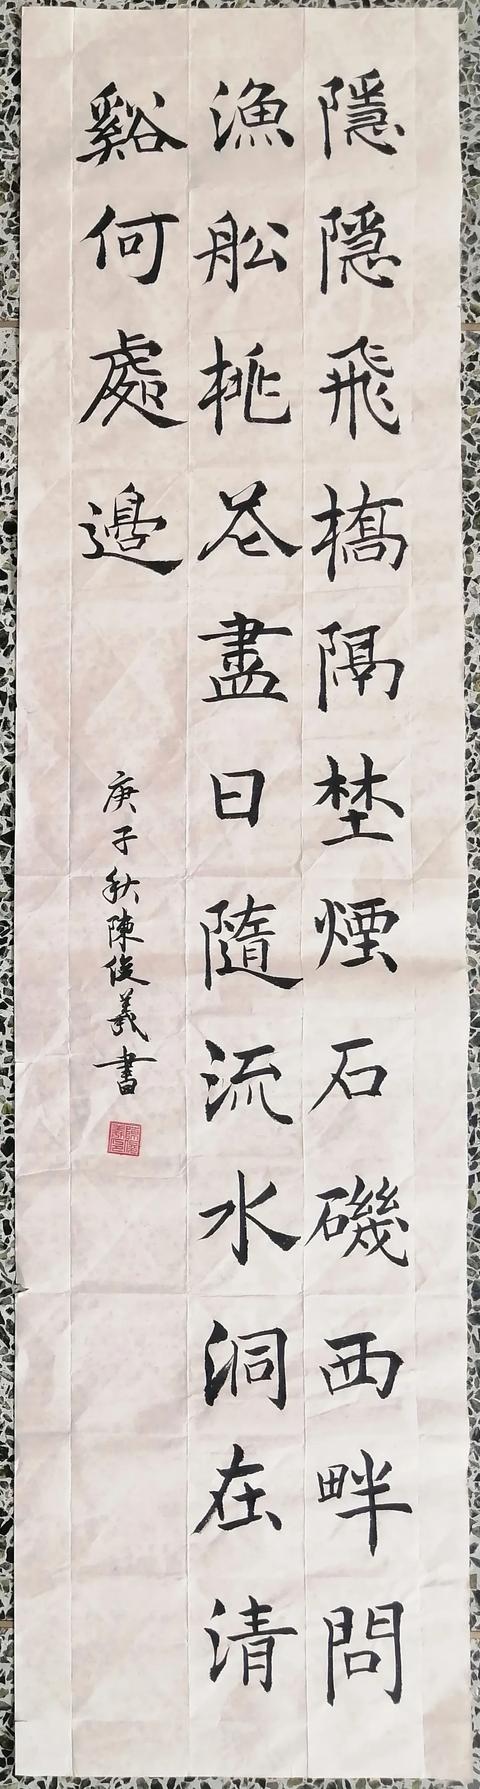 隱隱飛橋隔埜煙石磯西畔問
漁舩桃花盡日隨流水洞在清
谿何處邊
庚子秋陳俊義書